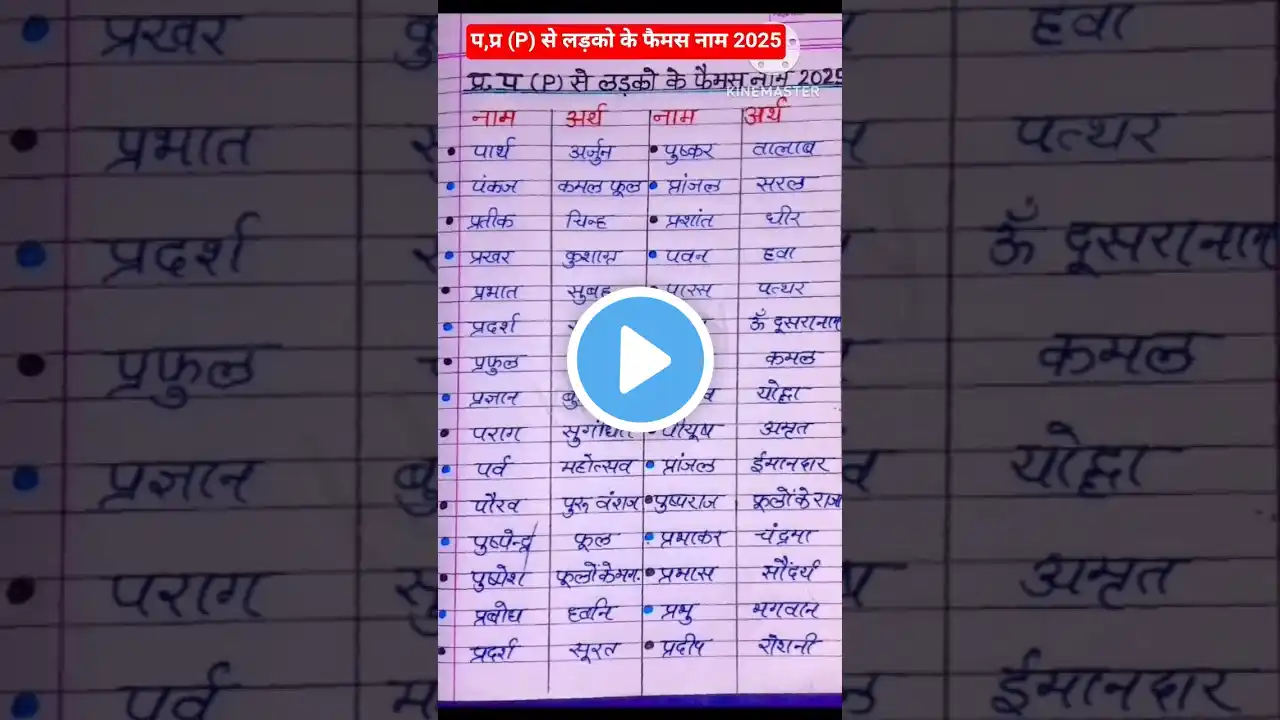 प,प्र (P) से लड़को के फैमस नाम 2025
KINEMASTER
प्र. प (P) से लड़को के फैमस नाम 2025
नाम अर्थ नाम अर्थ
पार्थ अर्जुन पुष्कर तालाब
पंकज कमल फूल प्रांजल सरल
प्रतीक चिन्ह प्रशांत धीर
प्रखर कुशाग्र पवन हवा
प्रभात सुबह पारस पत्थर
प्रदर्श ॐ दूसरा नाम
प्रफुल कमल
प्रज्ञान योद्धा
पराग सुगंधित पीयूष अमृत
पर्व महोत्सव प्रांजल ईमानदार
पौरव पुरू वंशज पुष्पराज फूलों के राजा
पुष्पेन्द्र फूल प्रभाकर चंद्रमा
पुष्पेश फूलों के भग. प्रभास सौंदर्य
प्रबोध ध्वनि प्रभु भगवान
प्रदर्श सूरत प्रदीप रोशनी
प्रखर हवा
प्रभात पत्थर
प्रदर्श ॐ दूसरा नाम
प्रफुल कमल
प्रज्ञान योद्धा
पराग अमृत
पर्व ईमानदार